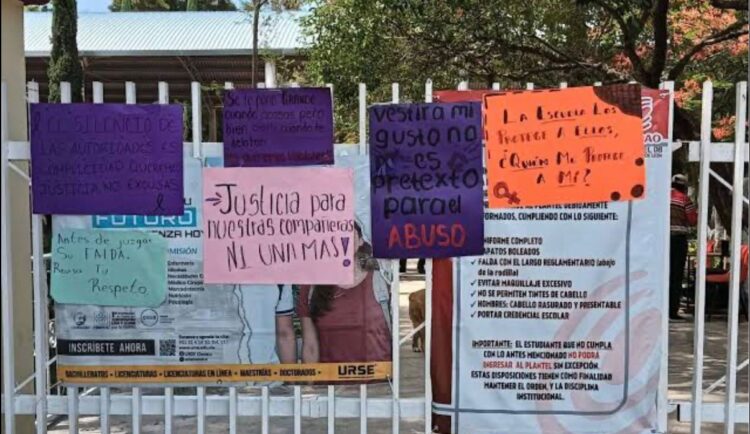 EL SILENCIO DE
LAS AUTORIDADES ES
COMPLICIDAD QUEREMOS
JUSTICIA NO EXCUSAS
Antes de juzgar
Su FALDA,
Revisa Tu
Respeto.
Justicia para
nuestras compañeras
NI UNA MAS!
Vestirme a
mi gusto no
es
pretexto
para el
ABUSO
La Escuela Los
Protege A Ellos,
¿Quién Me Protege
A Mí?
FUTURO
COMIENZA HOY
ADMISIÓN
Enfermería
Idiomas
Mercadotecnia
Nutrición
Psicología
INSCRÍBETE AHORA
URSE
BACHILLERATOS LICENCIATURAS LICENCIATURAS EN LÍNEA MAESTRÍAS DOCTORADOS
PLANTEL DEBIDAMENTE
UNIFORMADOS, CUMPLIENDO CON LO SIGUIENTE:
UNIFORME COMPLETO
ZAPATOS BOLEADOS
✓ FALDA CON EL LARGO REGLAMENTARIO (abajo
de la rodilla)
✓ EVITAR MAQUILLAJE EXCESIVO
✓ NO SE PERMITEN TINTES DE CABELLO
✓ HOMBRES: CABELLO RASURADO Y PRESENTABLE
✓ PORTAR CREDENCIAL ESCOLAR
IMPORTANTE: EL ESTUDIANTE QUE NO CUMPLA
CON LO ANTES MENCIONADO NO PODRÁ
INGRESAR AL PLANTEL SIN EXCEPCIÓN.
ESTAS DISPOSICIONES TIENEN COMO FINALIDAD
MANTENER EL ORDEN, Y LA DISCIPLINA
INSTITUCIONAL.